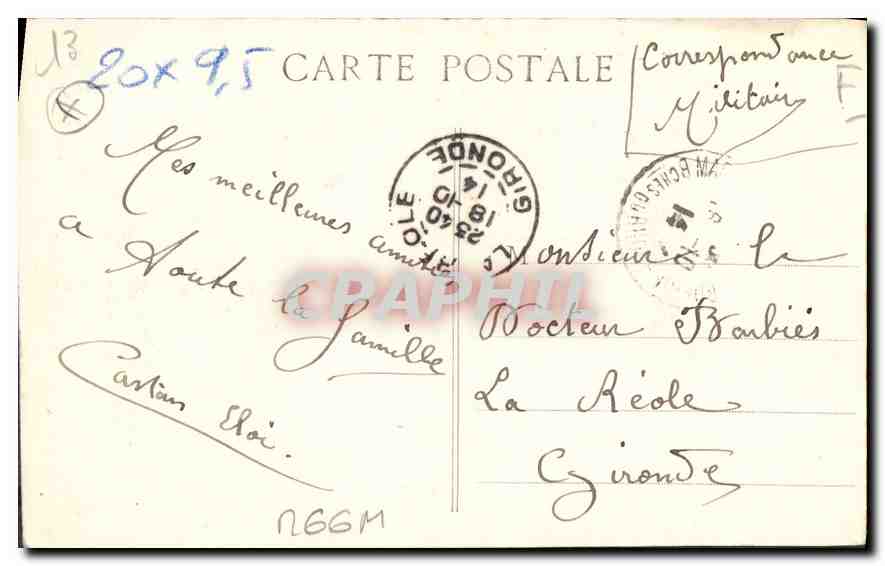 13
20 x 9,5
CARTE POSTALE
Correspondance
Militaire
F
Mes meilleures amitiés
a toute la famille
Castan Eloi.
LA RÉOLE
GIRONDE
23 40
18 -10
14
Monsieur le
Docteur Barbiés
La Réole
Gironde
CPRAPHIL
R66M